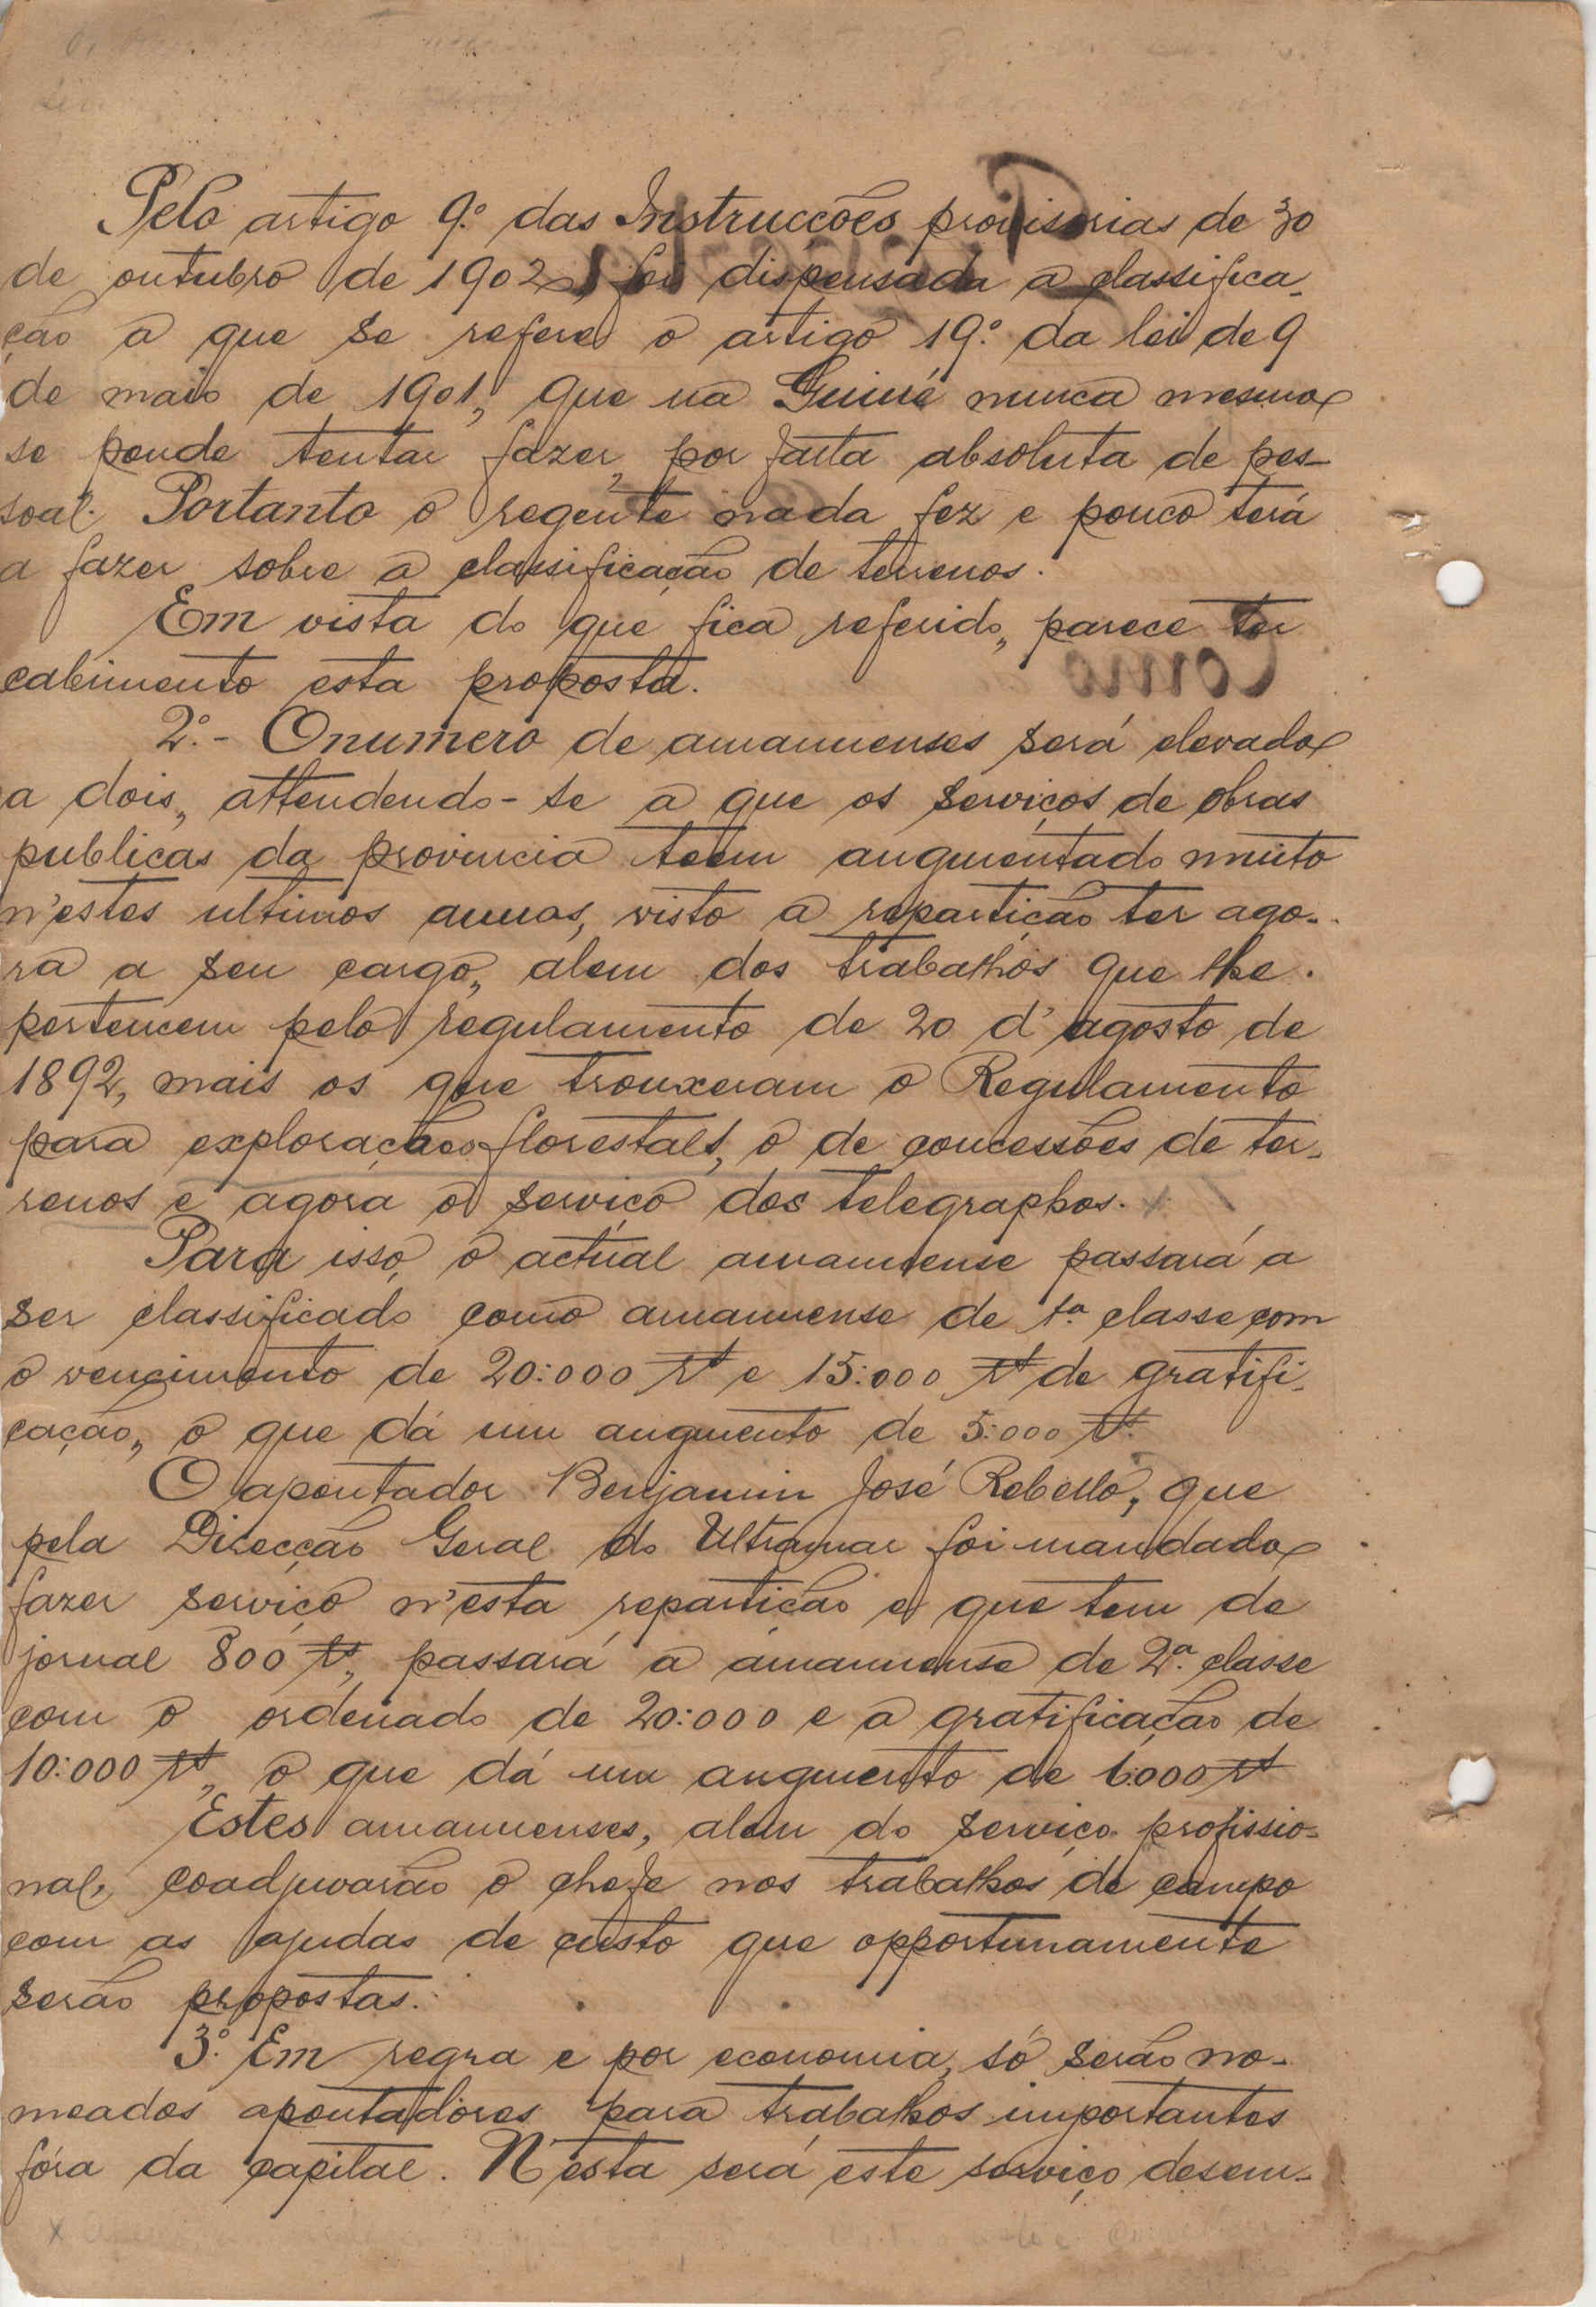 Pelo artigo 9.º das Instrucções provisorias de 30
de outubro de 1902, foi dispensada a classifica-
ção a que se refere o artigo 19.º da lei de 9
de maio de 1901, que na Guiné nunca mesmo
se poude tentar fazer, por falta absoluta de pes-
soal. Portanto o regente nada fez e pouco terá
a fazer sobre a classificação de terrenos.
Em vista do que fica referido, parece ter
cabimento esta proposta.
2.º - O numero de amanuenses será elevado
a dois, attendendo-se a que os serviços de obras
publicas da provincia teem augmentado muito
n'estes ultimos annos, visto a repartição ter ago-
ra a seu cargo, alem dos trabalhos que lhe
pertencem pelo regulamento de 20 d'agosto de
1892, mais os que trouxeram o Regulamento
para explorações florestaes, o de concessões de ter-
renos e agora o serviço dos telegraphos.
Para isso, o actual amanuense passará a
ser classificado como amanuense de 1.ª classe com
o vencimento de 20:000 rs e 15:000 rs de gratifi-
cação, o que dá um augmento de 5:000 rs.
O apontador Benjamin José Rebello, que
pela Direcção Geral do Ultramar foi mandado
fazer serviço n'esta repartição e que tem de
jornal 800 rs, passará a amanuense de 2.ª classe
com o ordenado de 20:000 e a gratificação de
10:000 rs, o que dá um augmento de 6:000 rs
Estes amanuenses, alem do serviço profissio-
nal, coadjuvarão o chefe nos trabalhos de campo
com as ajudas de custo que opportunamente
serão propostas.
3.º Em regra e por economia, só serão no-
meados apontadores para trabalhos importantes
fóra da capital. N'esta será este serviço desem-